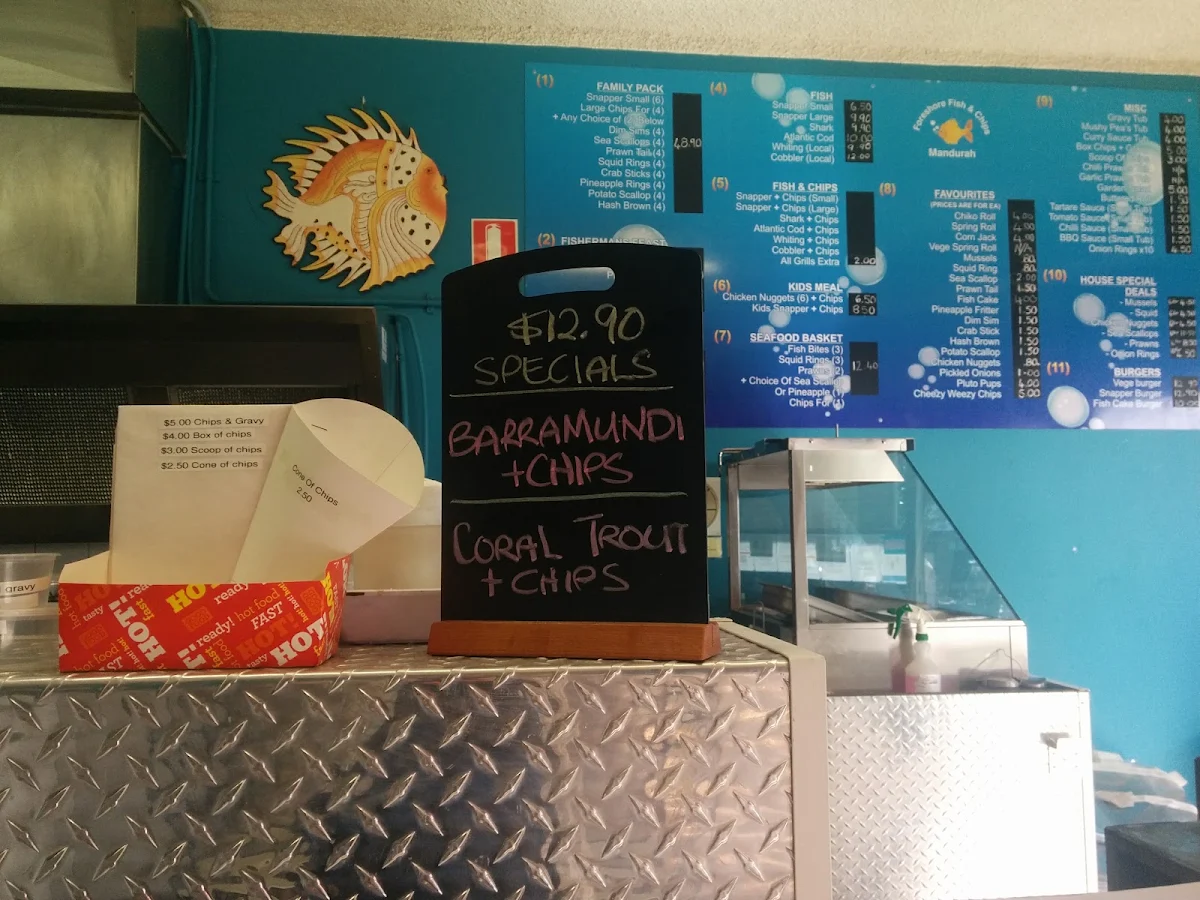 (1)
FAMILY PACK
Snapper Small (6)
Large Chips For (4)
+ Any Choice of Below
Dim Sims (4)
Sea Scallops (4)
Prawn Tail (4)
Squid Rings (4)
Crab Sticks (4)
Pineapple Rings (4)
Potato Scallop (4)
Hash Brown (4)
48.90
(2) FISHERMANS FEAST
(4)
FISH
Snapper Small 6.50
Snapper Large 9.90
Shark 9.90
Atlantic Cod 10.00
Whiting (Local) 9.90
Cobbler (Local) 12.00
(5)
FISH & CHIPS
Snapper + Chips (Small)
Snapper + Chips (Large)
Shark + Chips
Atlantic Cod + Chips
Whiting + Chips
Cobbler + Chips
All Grills Extra 2.00
(6)
KIDS MEAL
Chicken Nuggets (6) + Chips 6.50
Kids Snapper + Chips 8.50
(7)
SEAFOOD BASKET
Fish Bites (3)
Squid Rings (3)
+ Choice Of Sea
Or Pineapple
Chips For
12.40
Foreshore Fish & Chips
Mandurah
(8)
FAVOURITES
(PRICES ARE FOR EA)
Chiko Roll 4.00
Spring Roll 4.00
Corn Jack 4.00
Vege Spring Roll N/A
Mussels .80
Squid Ring .80
Sea Scallop 2.00
Prawn Tail 1.50
Fish Cake 4.00
Pineapple Fritter 1.50
Dim Sim 1.50
Crab Stick 1.50
Hash Brown 1.50
Potato Scallop 1.50
Chicken Nuggets .80
Pickled Onions 1.00
Pluto Pups 4.00
Cheezy Weezy Chips 5.00
(9)
MISC
Gravy Tub 4.00
Mushy Pea's Tub 4.00
Curry Sauce Tub 4.00
Box Chips +
Scoop Of 3.00
Chilli
Garlic
Garden 5.00
1.50
Tartare Sauce 1.50
Tomato Sauce 1.50
Chilli Sauce (Small Tub) 1.50
BBQ Sauce (Small Tub) 1.50
Onion Rings x10
(10)
HOUSE SPECIAL
DEALS
- Mussels
- Squid
Nuggets
Scallops
- Prawns
- Onion Rings
(11)
BURGERS
Vege burger
Snapper Burger
Fish Cake Burger
$12.90
SPECIALS
BARRAMUNDI
+CHIPS
CORAL TROUT
+ CHIPS
$5.00 Chips & Gravy
$4.00 Box of chips
$3.00 Scoop of chips
$2.50 Cone of chips
Cone Of Chips
2.50
gravy
tasty
HOT!
fast
ready! hot food
FAST
HOT!